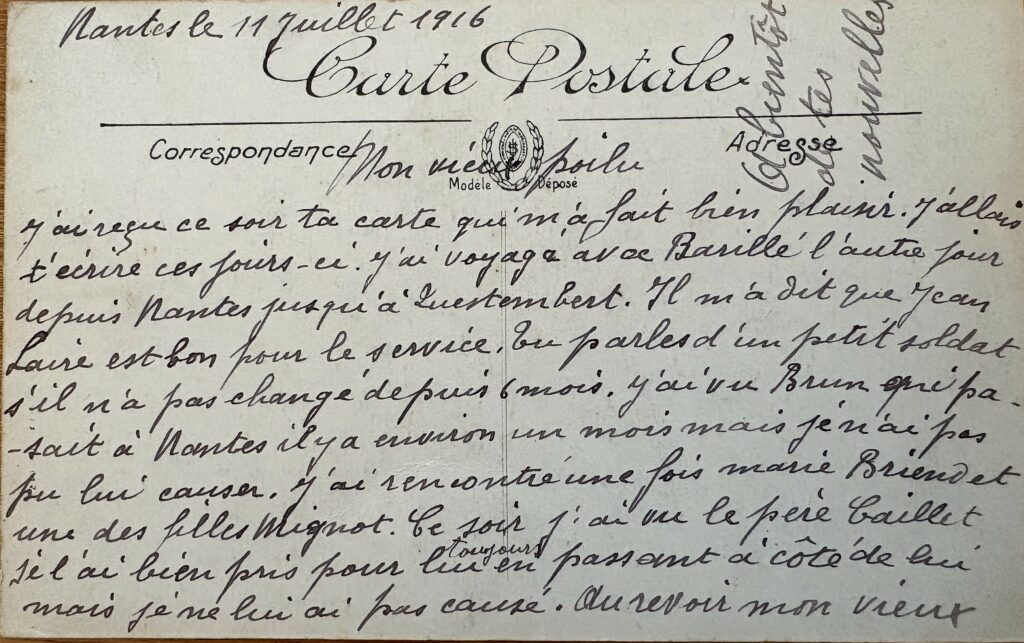 Nantes le 11 Juillet 1916
Carte Postale
Correspondance
Adresse
Modèle Déposé
Mon vieux poilu
J'ai reçu ce soir ta carte qui m'a fait bien plaisir. J'allais
t'écrire ces jours-ci. J'ai voyagé avec Barillé l'autre jour
depuis Nantes jusqu'à Questembert. Il m'a dit que Jean
Laire est bon pour le service. Tu parles d'un petit soldat
s'il n'a pas changé depuis 6 mois. J'ai vu Brun qui pa-
-sait à Nantes il y a environ un mois mais je n'ai pas
pu lui causer. J'ai rencontré une fois marie Briend et
une des filles Mignot. Ce soir j'ai vu le père Caillet
je l'ai bien pris pour lui toujours en passant à côté de lui
mais je ne lui ai pas causé. Au revoir mon vieux
A bientôt
de tes
nouvelles